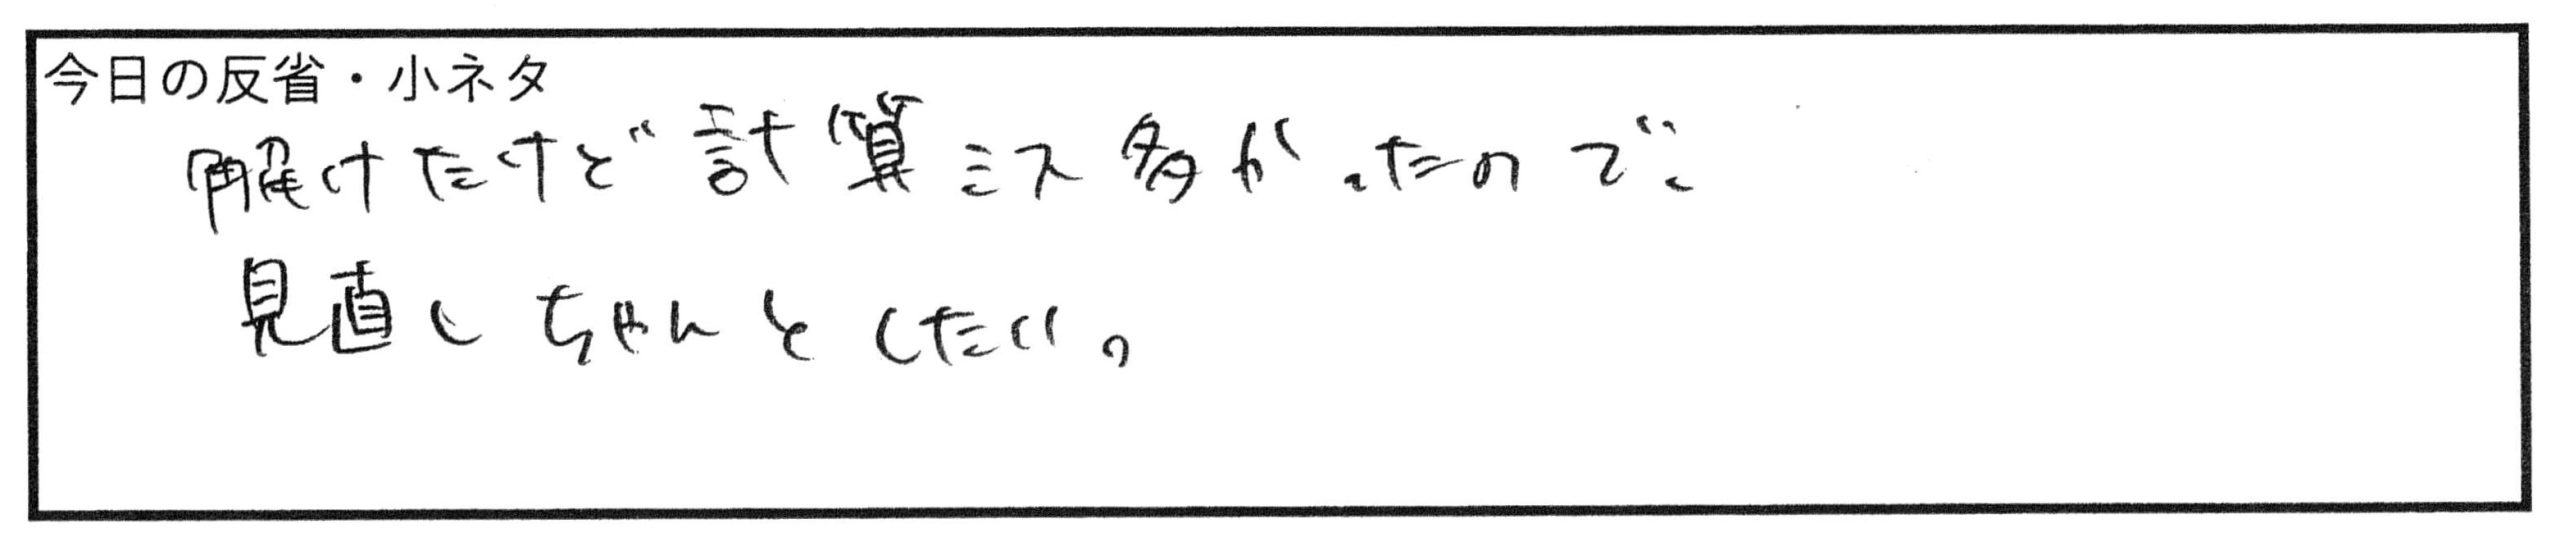 今日の反省・小ネタ
解けたけど計算ミス多かったので、
見直しちゃんとしたい。